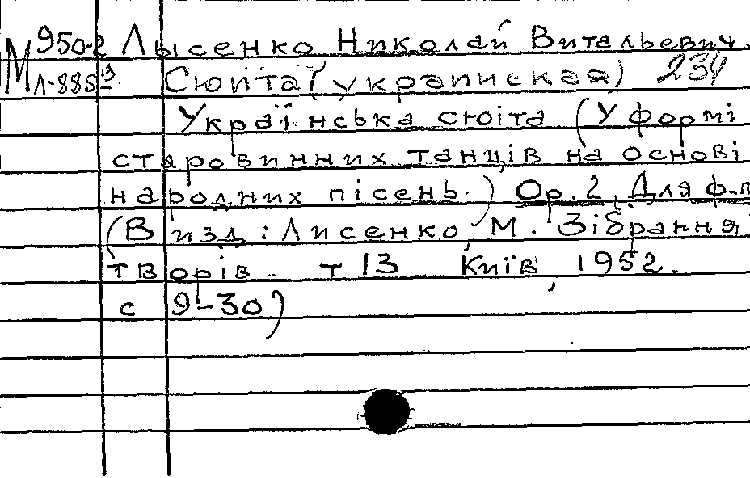 М 950-2 Лысенко Николай Витальевич.
Л-885 Сюита (украинская) 234
Українська сюїта (У формі
старовинних танців на основі
народних пісень.) Op. 2. Для ф-п
(В изд: Лисенко, М. Зібрання
творів. т 13 Київ, 1952.
с 9-30)